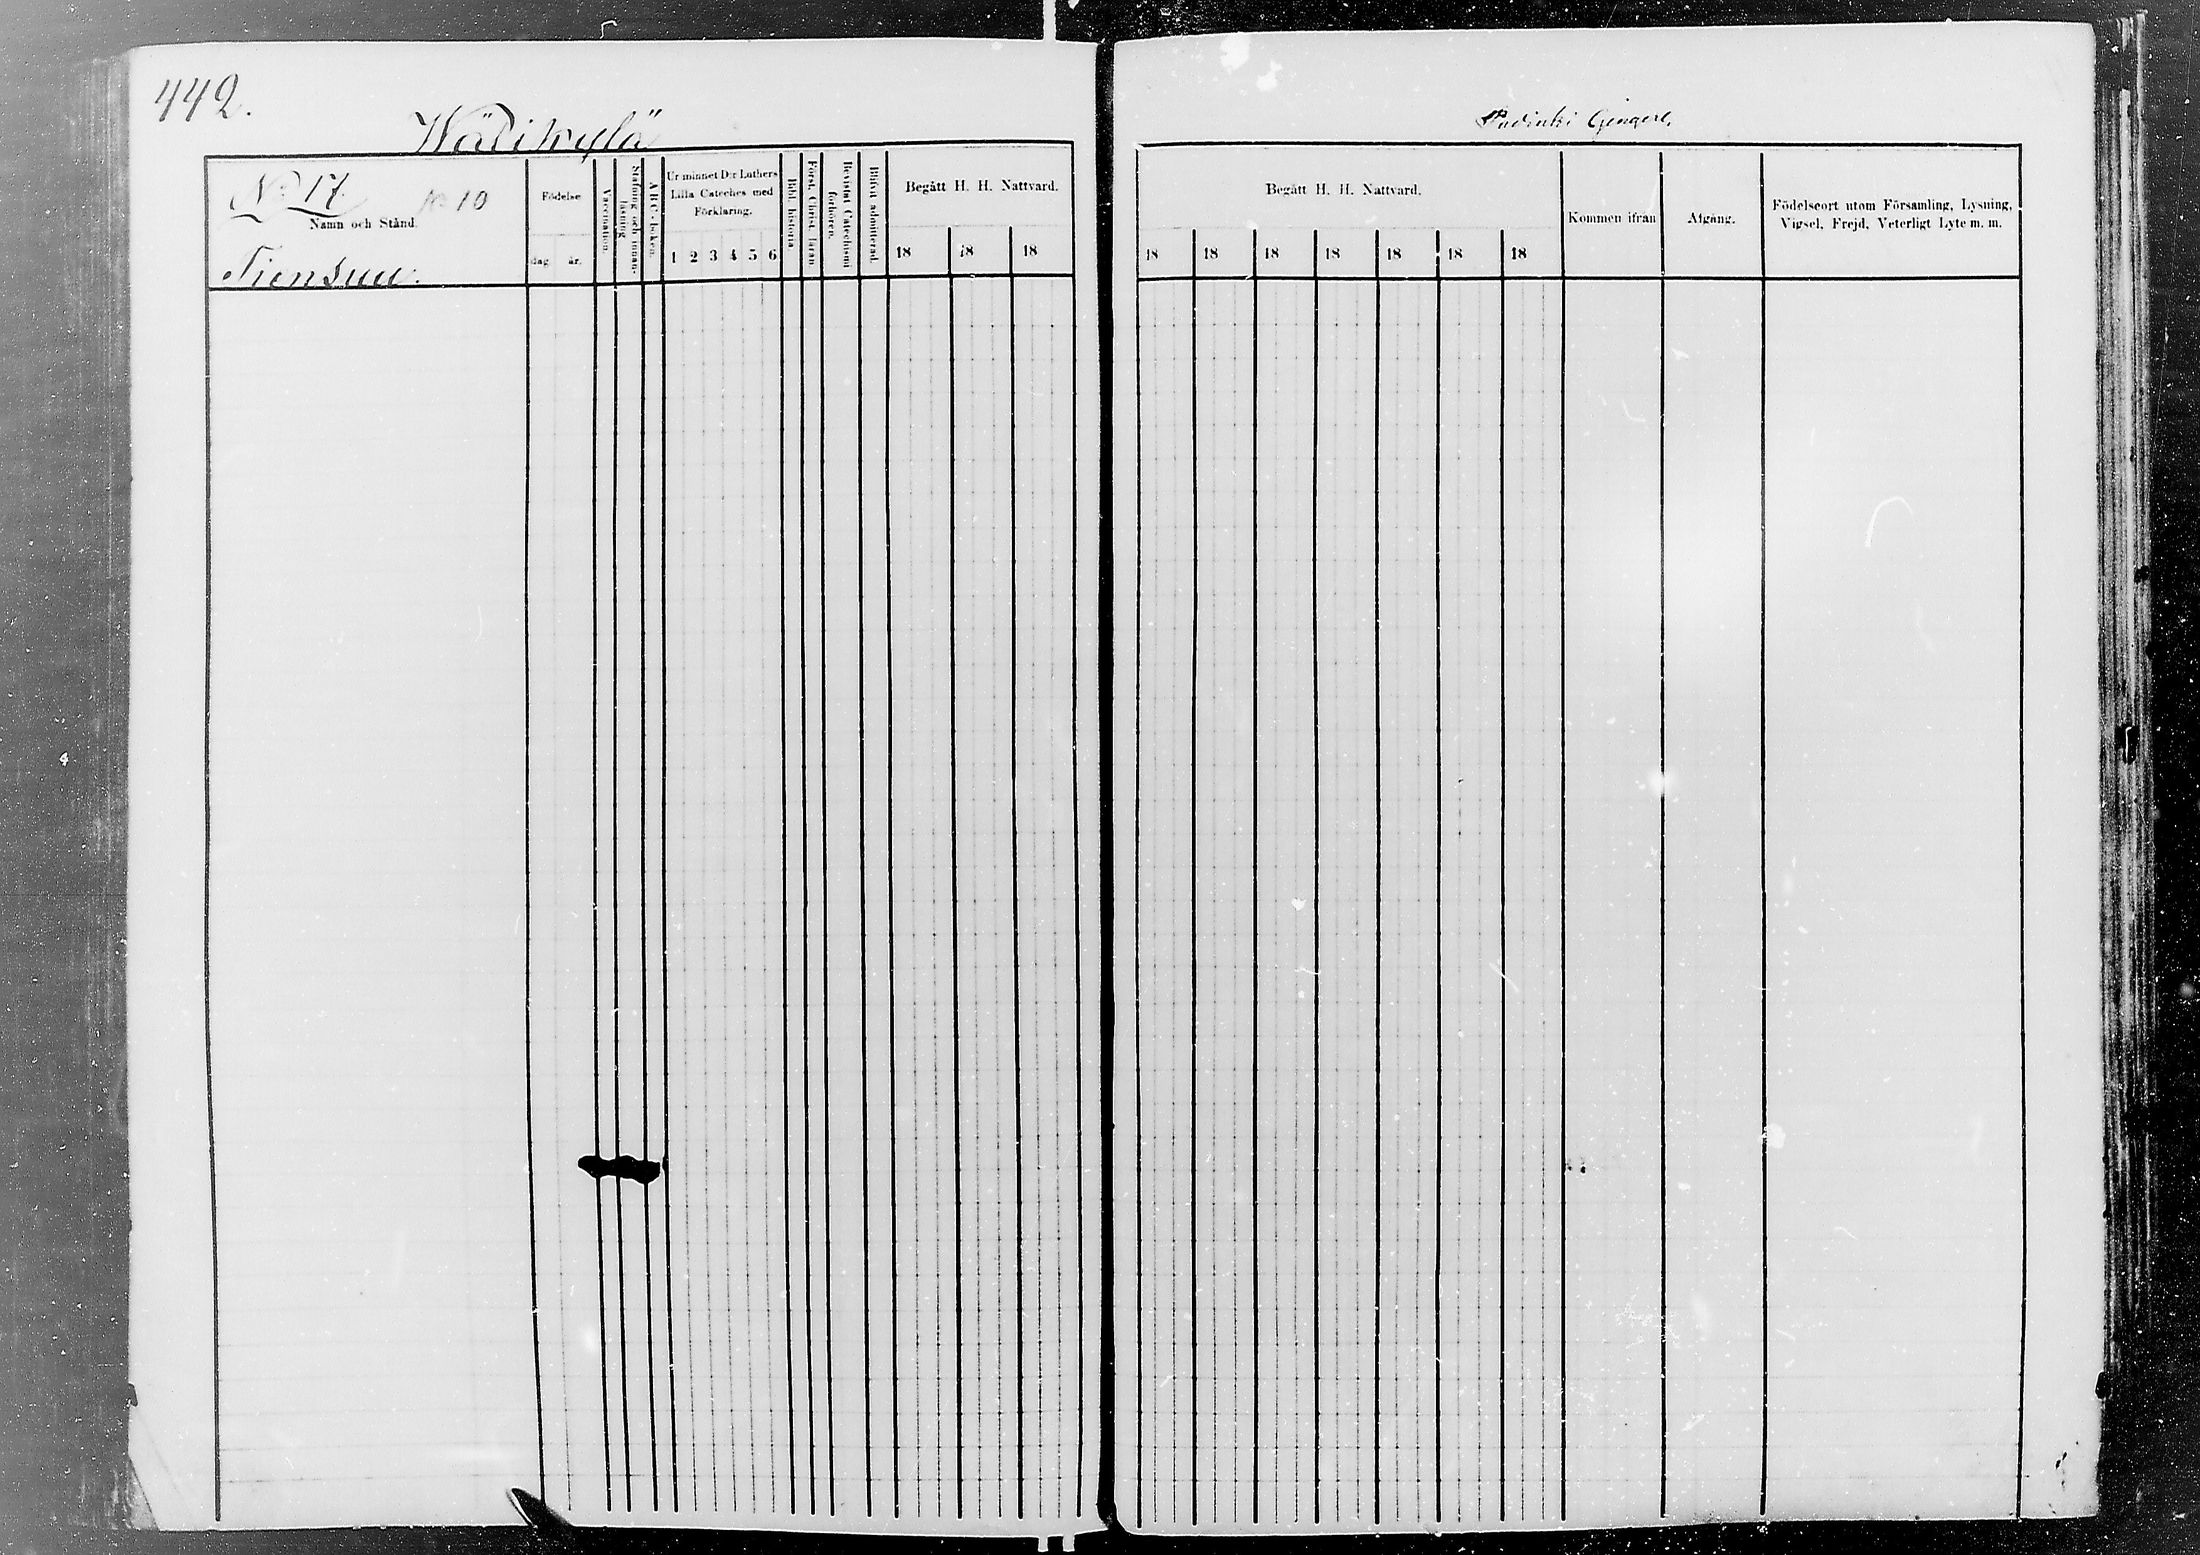 442.
Wälikylä
No 17.
No 10
Namn och Stånd.
Tiensuu.
Födelse
dag. år.
Vaccination.
Stafning och innan-
läsning
ABC-boken.
Ur minnet D:r Luthers
Lilla Cateches med
Förklaring.
1 2 3 4 5 6
Bibl. historia
Först. Christ. läran
Bevistat Catechismi
förhören.
Blifvit admitterad.
Begått H. H. Nattvard.
18 18 18
Begått H. H. Nattvard.
18 18 18 18 18 18 18
Kommen ifrån
Afgång.
Födelseort utom Församling, Lysning,
Vigsel, Frejd, Veterligt Lyte m. m.